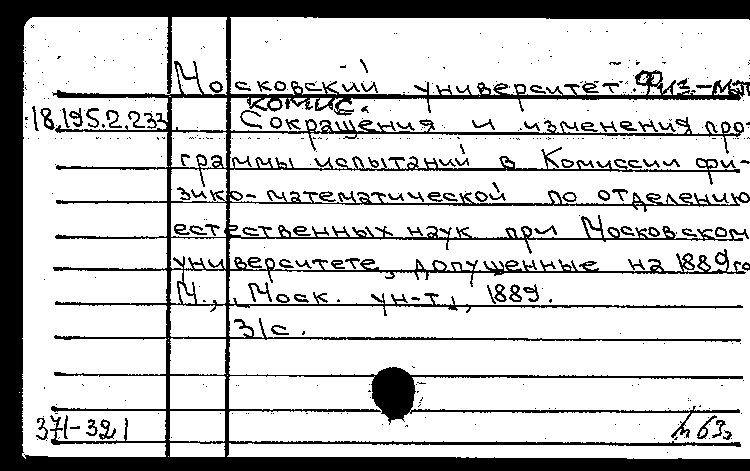 Московский университет Физ.-мат
комис.
18.195.2.233. Сокращения и изменения прог
граммы испытаний в Комиссии фи-
зико-математической по отделению
естественных наук при Московском
университете, допущенные на 1889 го
М., [Моск. ун-т], 1889.
31с.
371-321